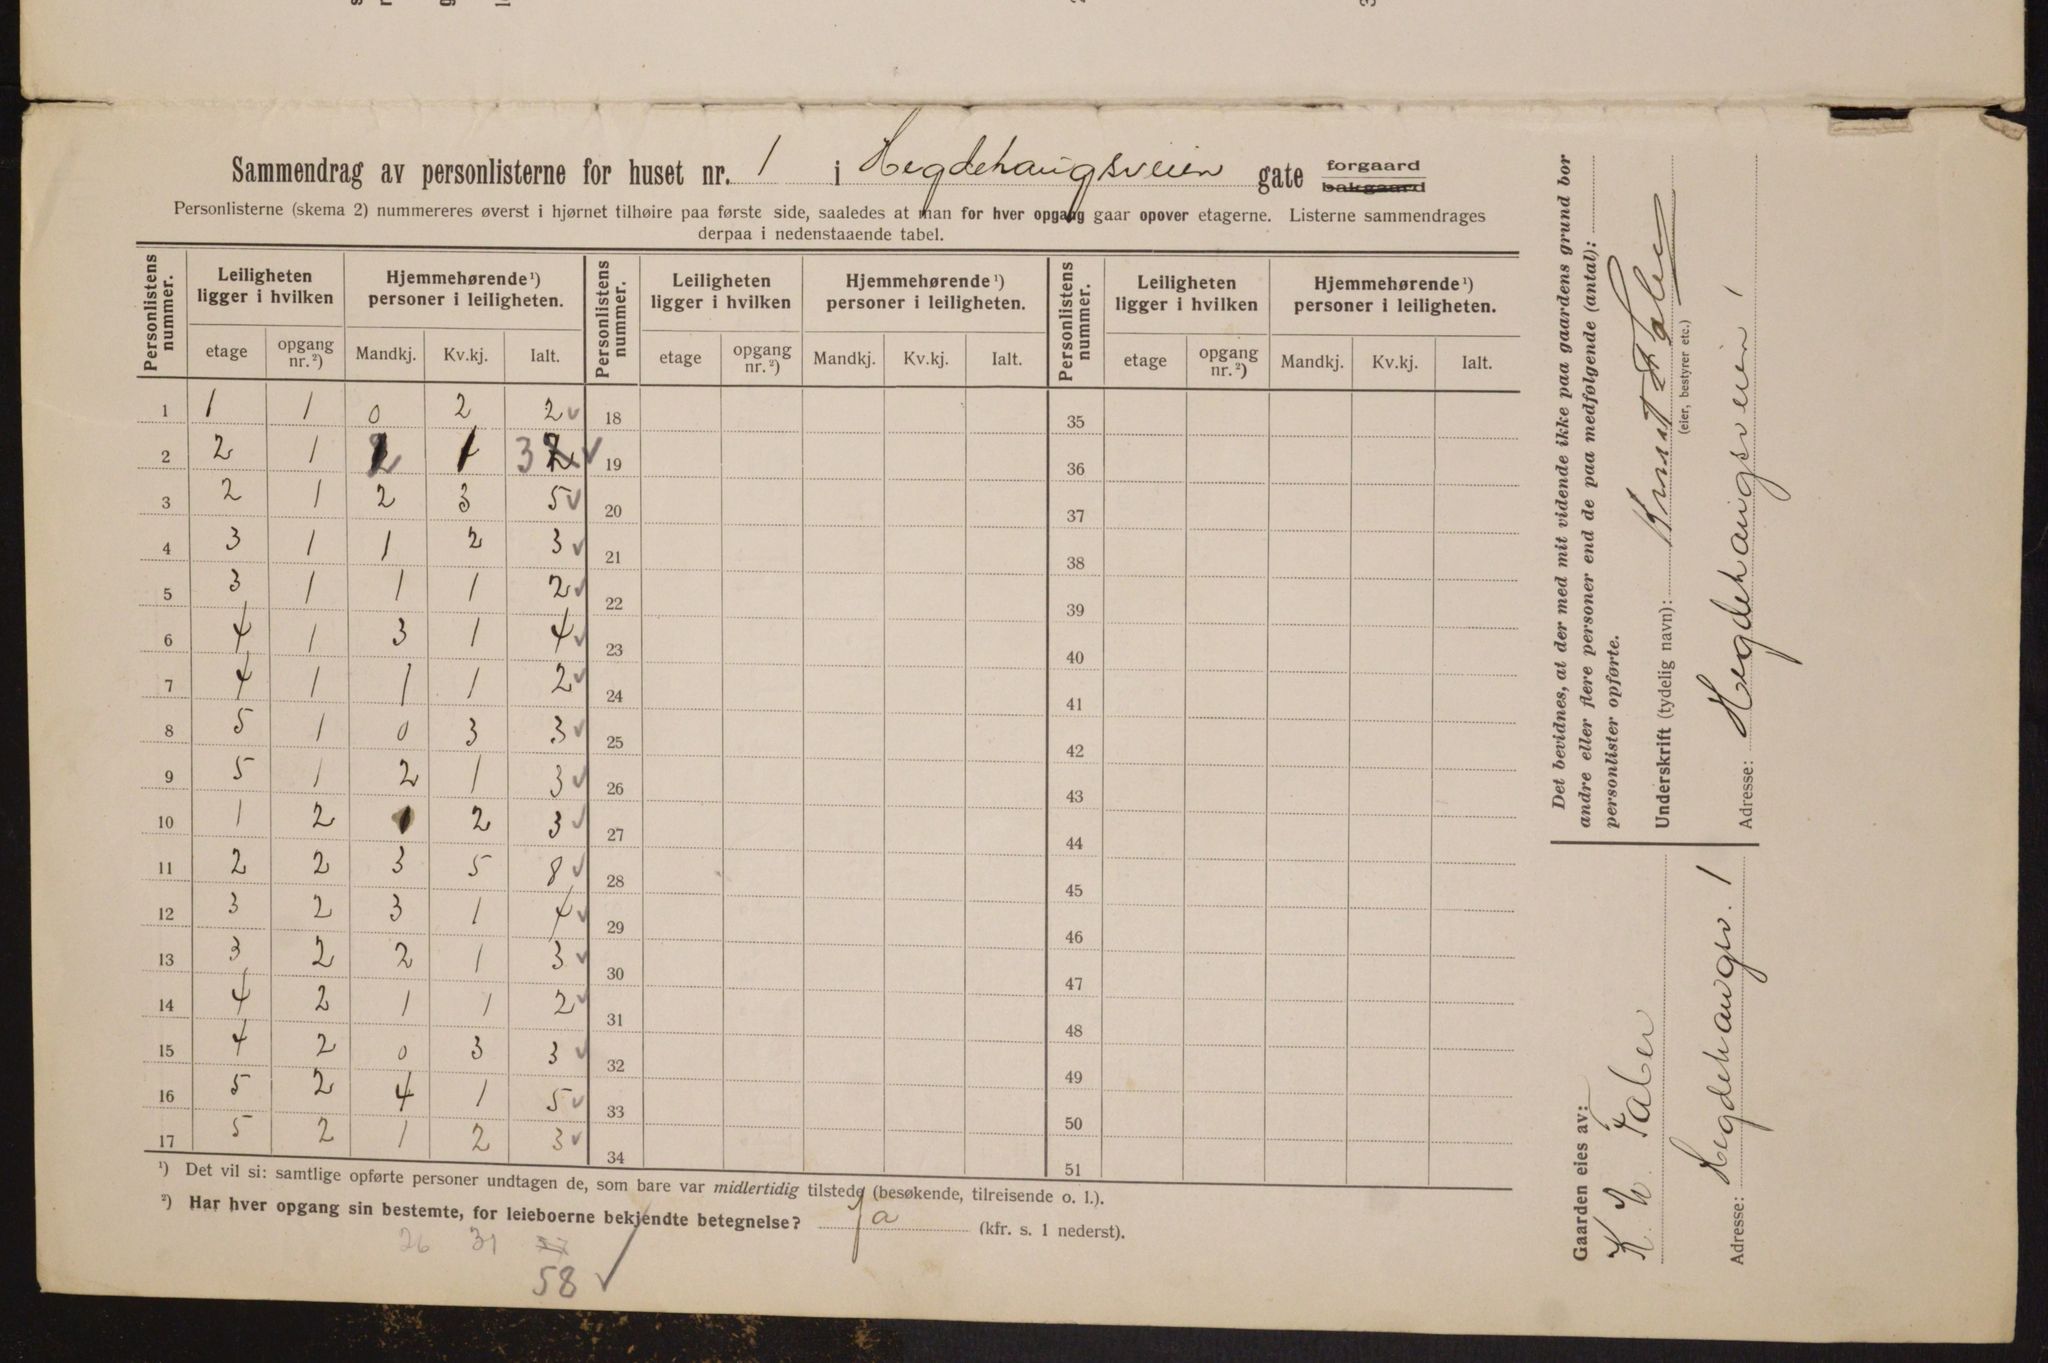 Sammendrag av personlisterne for huset nr. 1 i Hegdehaugsveien gate forgaard bakgaard
Personlisterne (skema 2) nummereres øverst i hjørnet tilhøire paa første side, saaledes at man for hver opgang gaar opover etagerne. Listerne sammendrages
derpaa i nedenstaaende tabel.
Personlistens nummer. Leiligheten ligger i hvilken Hjemmehørende ¹) personer i leiligheten. Personlistens nummer. Leiligheten ligger i hvilken Hjemmehørende ¹) personer i leiligheten. Personlistens nummer. Leiligheten ligger i hvilken Hjemmehørende ¹) personer i leiligheten.
etage opgang nr. ²) Mandkj. Kv.kj. Ialt. etage opgang nr. ²) Mandkj. Kv.kj. Ialt. etage opgang nr. ²) Mandkj. Kv.kj. Ialt.
1 1 1 0 2 2 ✓ 18 35
2 2 1 2 1 3 2 ✓ 19 36
3 2 1 2 3 5 ✓ 20 37
4 3 1 1 2 3 ✓ 21 38
5 3 1 1 1 2 ✓ 22 39
6 4 1 3 1 4 ✓ 23 40
7 4 1 1 1 2 ✓ 24 41
8 5 1 0 3 3 ✓ 25 42
9 5 1 2 1 3 ✓ 26 43
10 1 2 1 2 3 ✓ 27 44
11 2 2 3 5 8 ✓ 28 45
12 3 2 3 1 4 ✓ 29 46
13 3 2 2 1 3 ✓ 30 47
14 4 2 1 1 2 ✓ 31 48
15 4 2 0 3 3 ✓ 32 49
16 5 2 4 1 5 ✓ 33 50
17 5 2 1 2 3 ✓ 34 51
¹) Det vil si: samtlige opførte personer undtagen de, som bare var midlertidig tilstede (besøkende, tilreisende o. l.).
²) Har hver opgang sin bestemte, for leieboerne bekjendte betegnelse? Ja (kfr. s. 1 nederst).
26 31 57
58 ✓
Det bevidnes, at der med mit vidende ikke paa gaardens grund bor
andre eller flere personer end de paa medfølgende (antal):
personlister opførte.
Underskrift (tydelig navn): Knut Faber
(eier, bestyrer etc.)
Adresse: Hegdehaugsveien 1
Gaarden eies av:
K. Faber
Adresse: Hegdehaugsv. 1